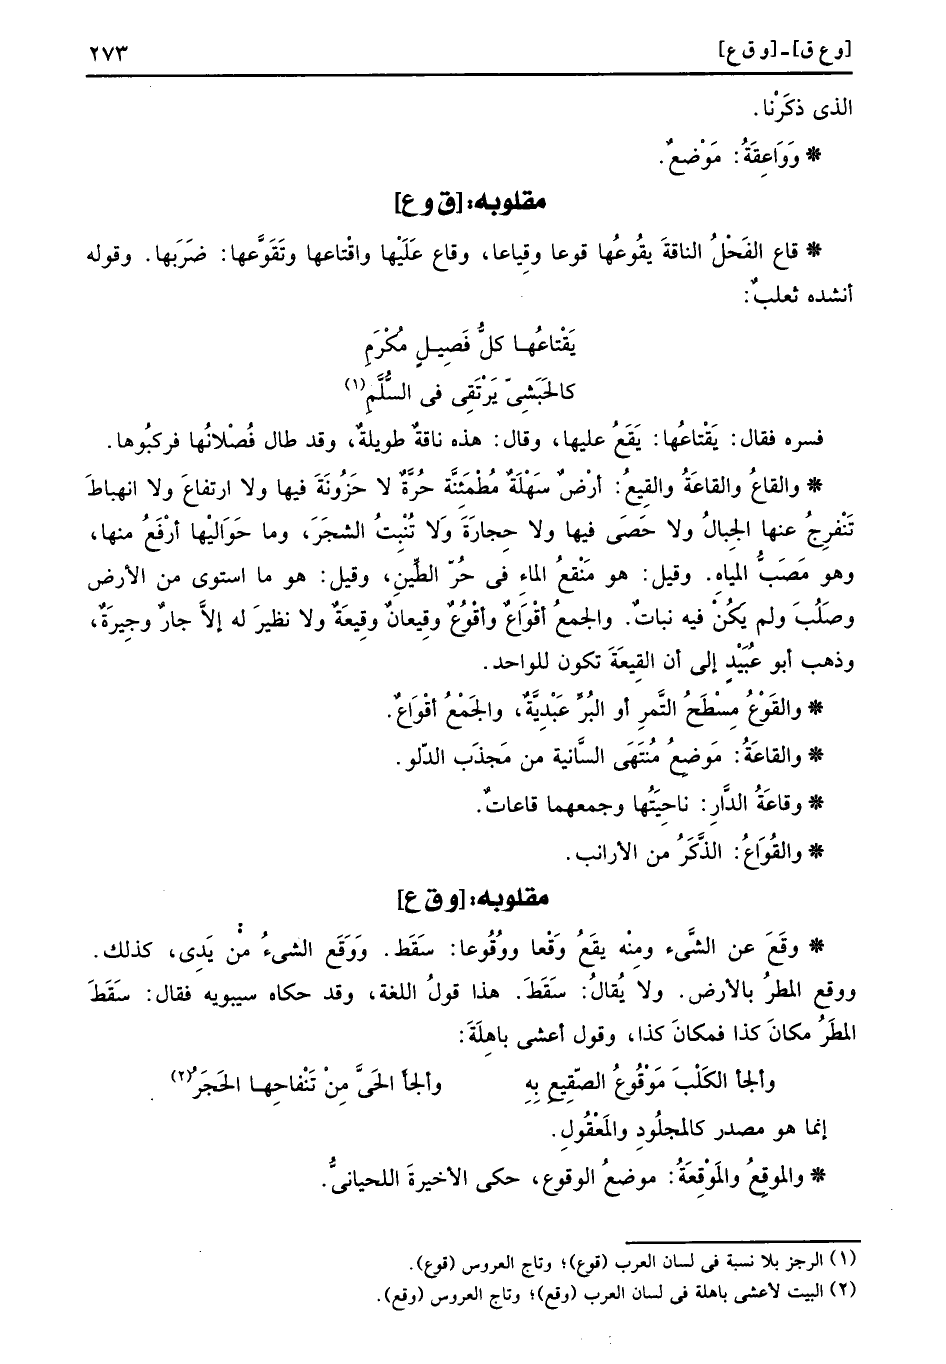 [و ع ق] - [و ق ع] ٢٧٣
الذى ذكَرْنا.
* وَوَاعِقَةُ: مَوْضعٌ.
مقلوبه: [ق و ع]
* قاع الفَحْلُ الناقةَ يقُوعُها قوعا وقِياعا، وقاع عَلَيْها واقْتاعها وتَقَوَّعها: ضرَبها. وقوله
أنشده ثعلبٌ:
يَقْتاعُهـا كلُّ فَصِيـلٍ مُكْرَمِ
كالحَبَشىّ يَرْتَقِى فى السُّلَّمِ(١)
فسره فقال: يَقْتاعُها: يَقَعُ عليها، وقال: هذه ناقةٌ طويلةٌ، وقد طال فُصْلانُها فركبُوها.
* والقاعُ والقاعَةُ والقِيعُ: أرْضٌ سَهْلَةٌ مُطْمَئنَّة حُرَّةٌ لا حَزُونَةَ فيها ولا ارتفاعَ ولا انهباطَ
تَنْفرِجُ عنها الجبالُ ولا حَصَى فيها ولا حِجارَةَ وَلا تُنْبِتُ الشجَرَ، وما حوَاليْها أرْفَعُ منها،
وهو مَصَبُّ المِياهِ. وقيل: هو مَنْقعُ الماءِ فى حُرّ الطِّينِ، وقيل: هو ما استوى من الأرض
وصَلُبَ ولم يَكُنْ فيه نباتٌ. والجمعُ أقْوَاعٌ وأقْوُعٌ وقِيعانٌ وقِيعَةٌ ولا نظيرَ له إلاَّ جارٌ وجِيرَةٌ،
وذهب أبو عُبَيْدٍ إلى أن القِيعَةَ تكون للواحد.
* والقَوْعُ مِسْطَحُ التَّمرِ أو البُرِّ عَبْدِيَّةٌ، والجَمْعُ أقْوَاعٌ.
* والقاعَةُ: مَوضِعُ مُنْتَهَى السَّانية من مَجذَب الدّلو.
* وقاعَةُ الدَّارِ: ناحِيَتُها وجمعهما قاعاتٌ.
* والقُوَاعُ: الذَّكَرُ من الأرانب.
مقلوبه: [و ق ع]
* وقَعَ عن الشَّىء ومِنْه يقَعُ وَقْعا ووُقُوعا: سقَط. وَوَقَع الشىءُ مْن يَدِى، كذلك.
ووقع المطرُ بالأرض. ولا يُقالُ: سقَطَ. هذا قولُ اللغة، وقد حكاه سيبويه فقال: سقَطَ
المطَرُ مكانَ كذا فمكانَ كذا، وقول أعشى باهِلَةَ:
وألجأ الكَلْبَ مَوْقُوعُ الصّقِيعِ بِهِ وألجأ الحَىَّ مِنْ تَنْفاحِهـا الحَجَرُ(٢)
إنما هو مصدر كالمجلُودِ والمَعْقُولِ.
* والموقِعُ والمَوْقِعَةُ: موضعُ الوقوع، حكى الأخيرةَ اللحيانىُّ.
(١) الرجز بلا نسبة فى لسان العرب (قوع)؛ وتاج العروس (قوع).
(٢) البيت لأعشى باهلة فى لسان العرب (وقع)؛ وتاج العروس (وقع).